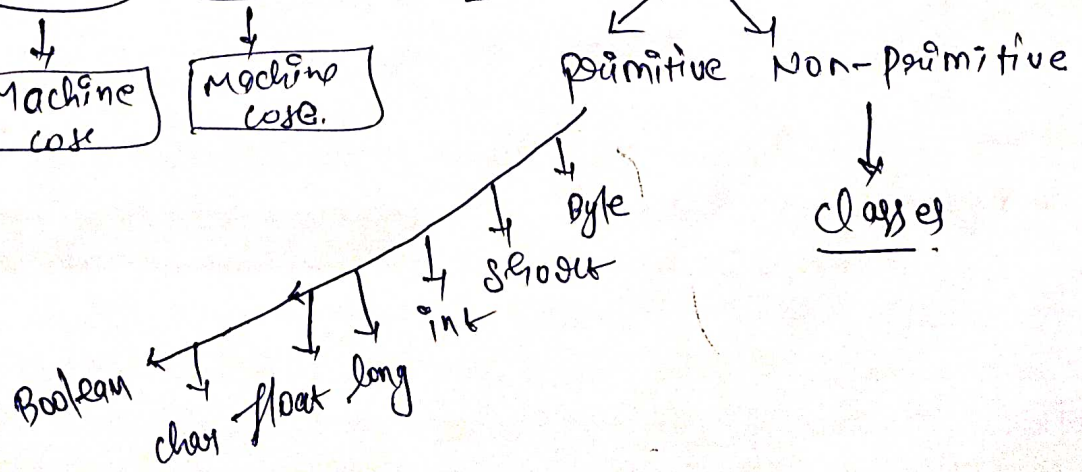 Machine
cose
Machine
cose.
primitive Non-primitive
Byte
short
int
long
float
char
Boolean
classes